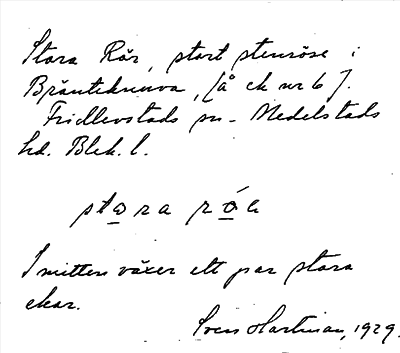 Stora Rör, stort stenröse i
Bräntekunna, [å ek nr 6].
Fridlevstads sn. Medelstads
hd. Blek. l.
stora rör
I mitten växer ett par stora
ekar.
Sven Hartman, 1929.